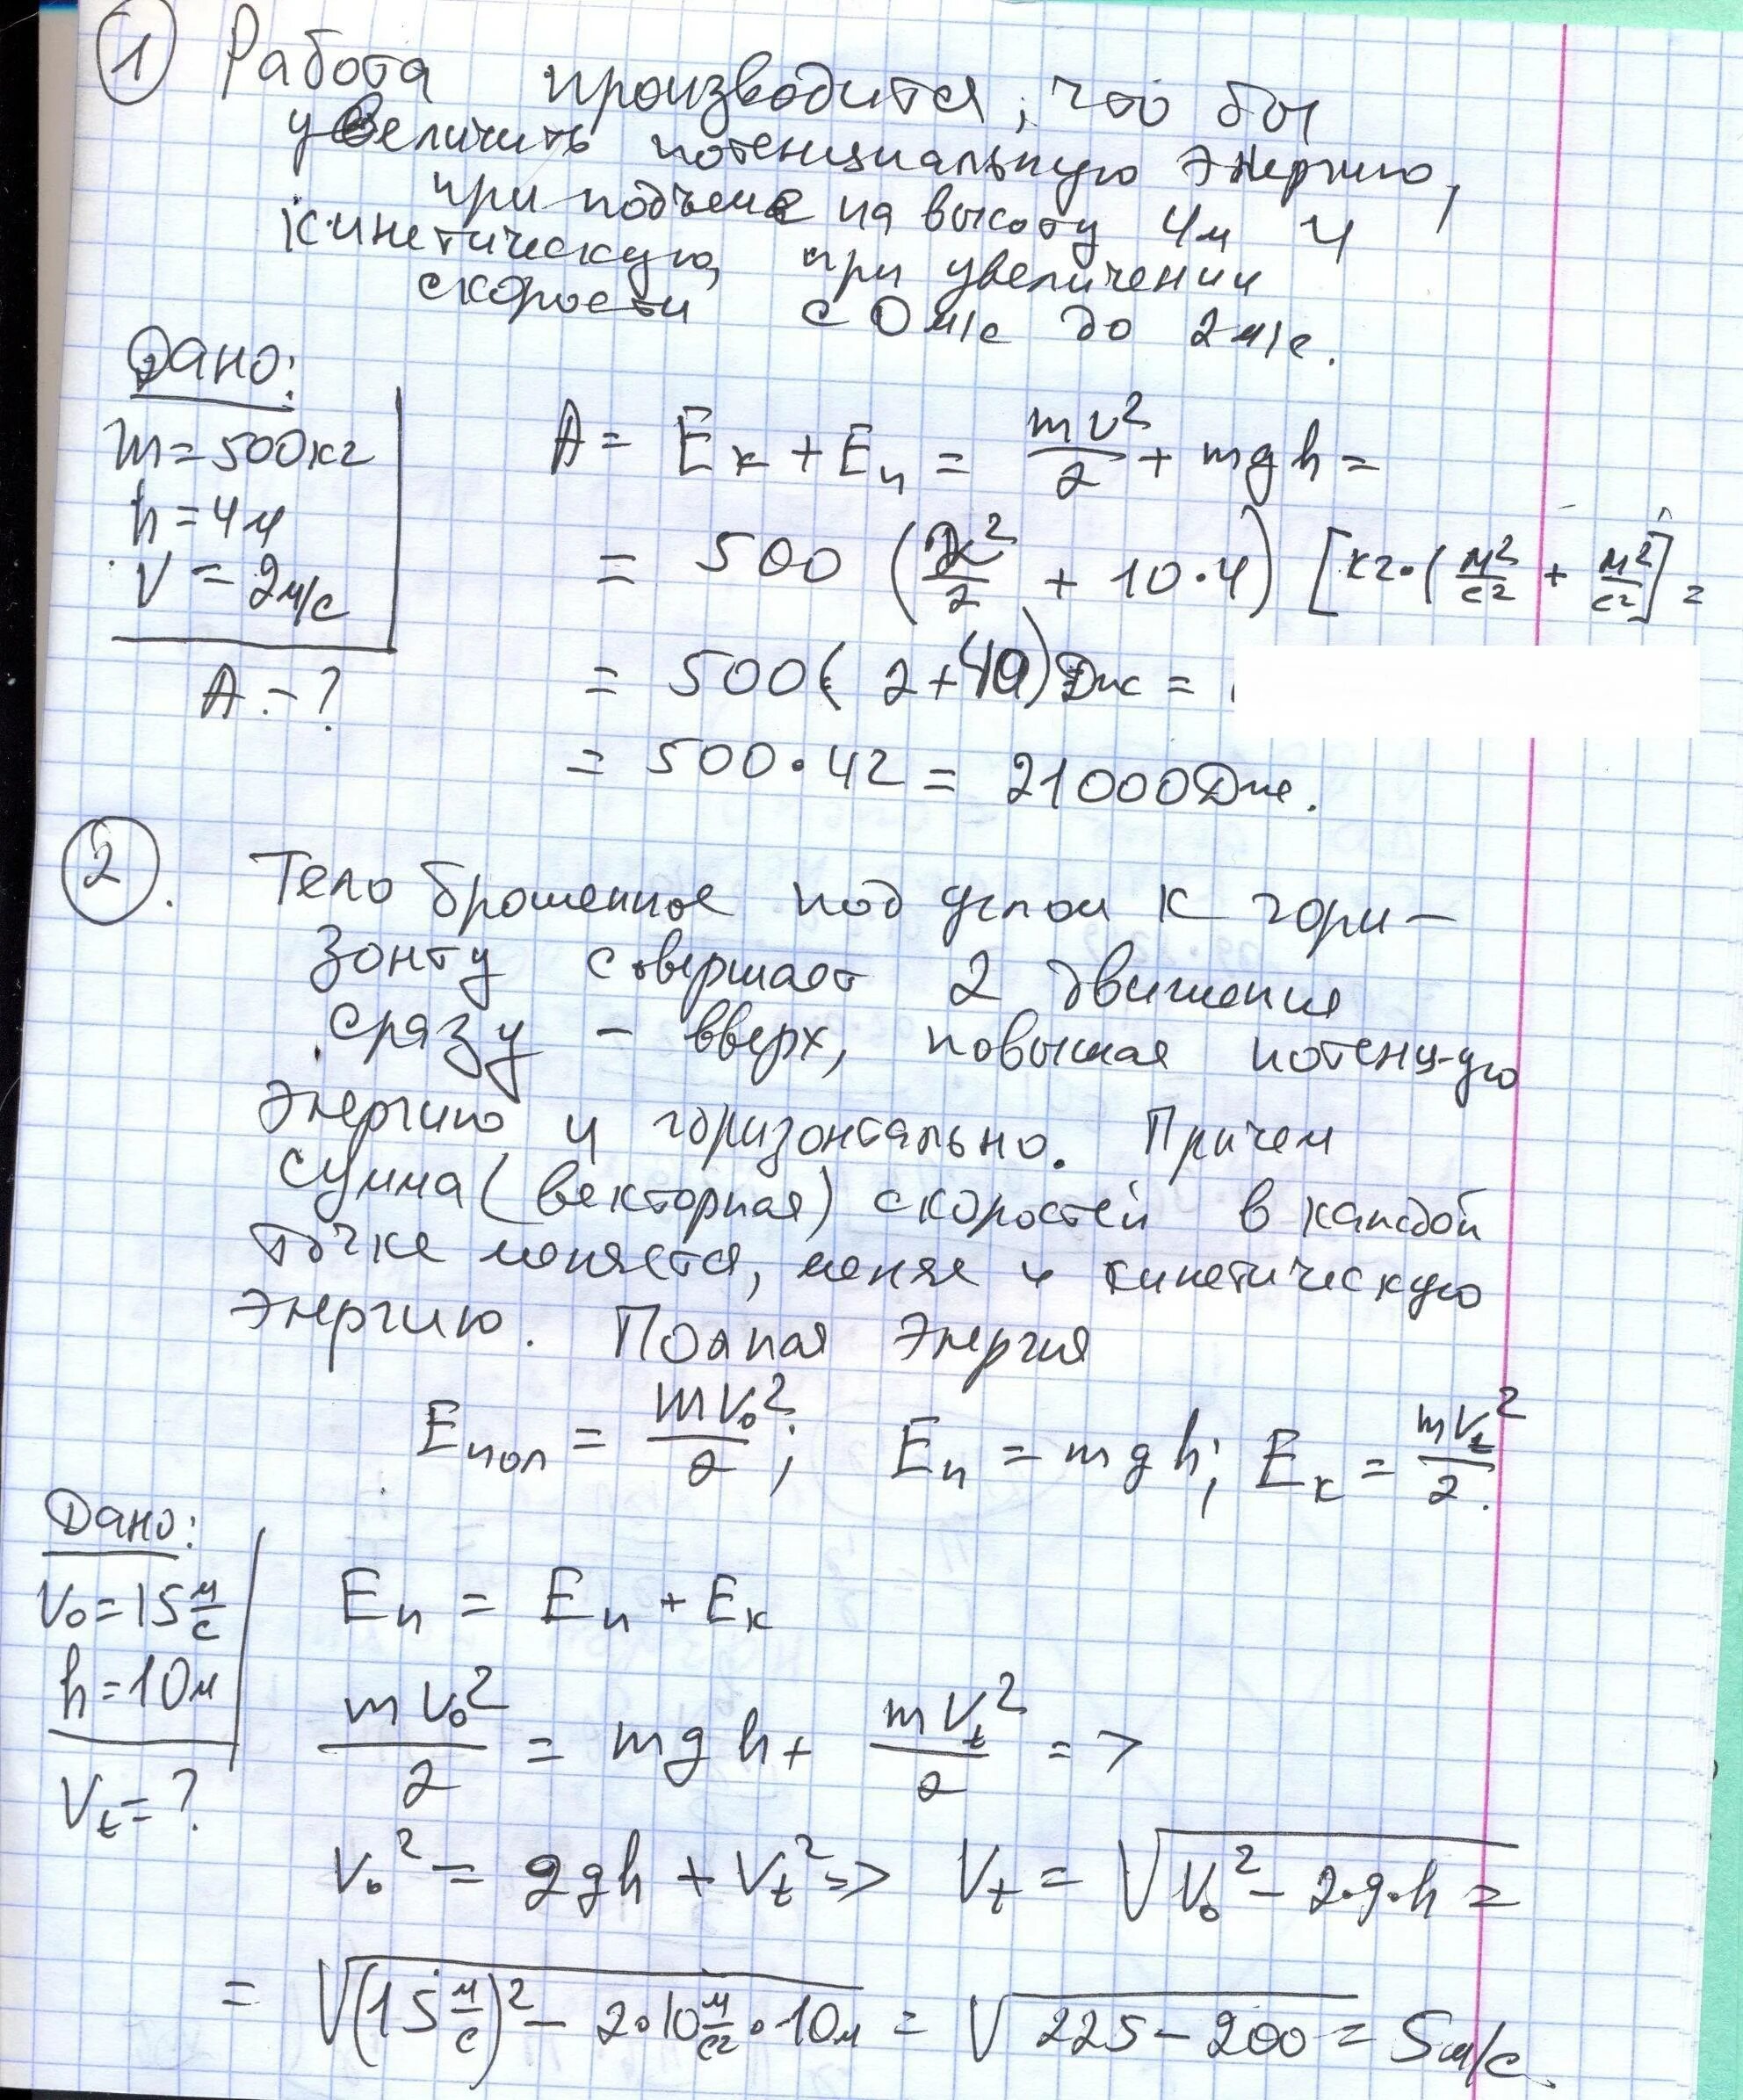 1 Работа производится, что бы
увеличить потенциальную энергию,
при подъеме на высоту 4м и
кинетическую, при увеличении
скорости с 0 м/с до 2 м/с.
Дано:
m = 500 кг
h = 4 м
V = 2 м/с
A - ?
A = Eк + Eп = mv²/2 + mgh =
= 500 (2²/2 + 10·4) [кг·(м²/с² + м²/с²] =
= 500( 2+40) Дж =
= 500·42 = 21000 Дж.
2. Тело брошенное под углом к гори-
зонту совершает 2 движения
сразу – вверх, повышая потенц-ую
энергию и горизонтально. Причем
сумма (векторная) скоростей в каждой
точке меняется, меняя и кинетическую
энергию. Полная энергия
Eпол = mV₀²/2; Eп = mgh; Eк = mVt²/2.
Дано:
V₀ = 15 м/с
h = 10 м
Vt = ?
Eп = Eп + Eк
mV₀²/2 = mgh + mVt²/2 =>
V₀² = 2gh + Vt² => Vt = √(V₀² – 2·g·h =
= √((15 м/с)² – 2·10 м/с² · 10 м = √(225 – 200 = 5 м/с.